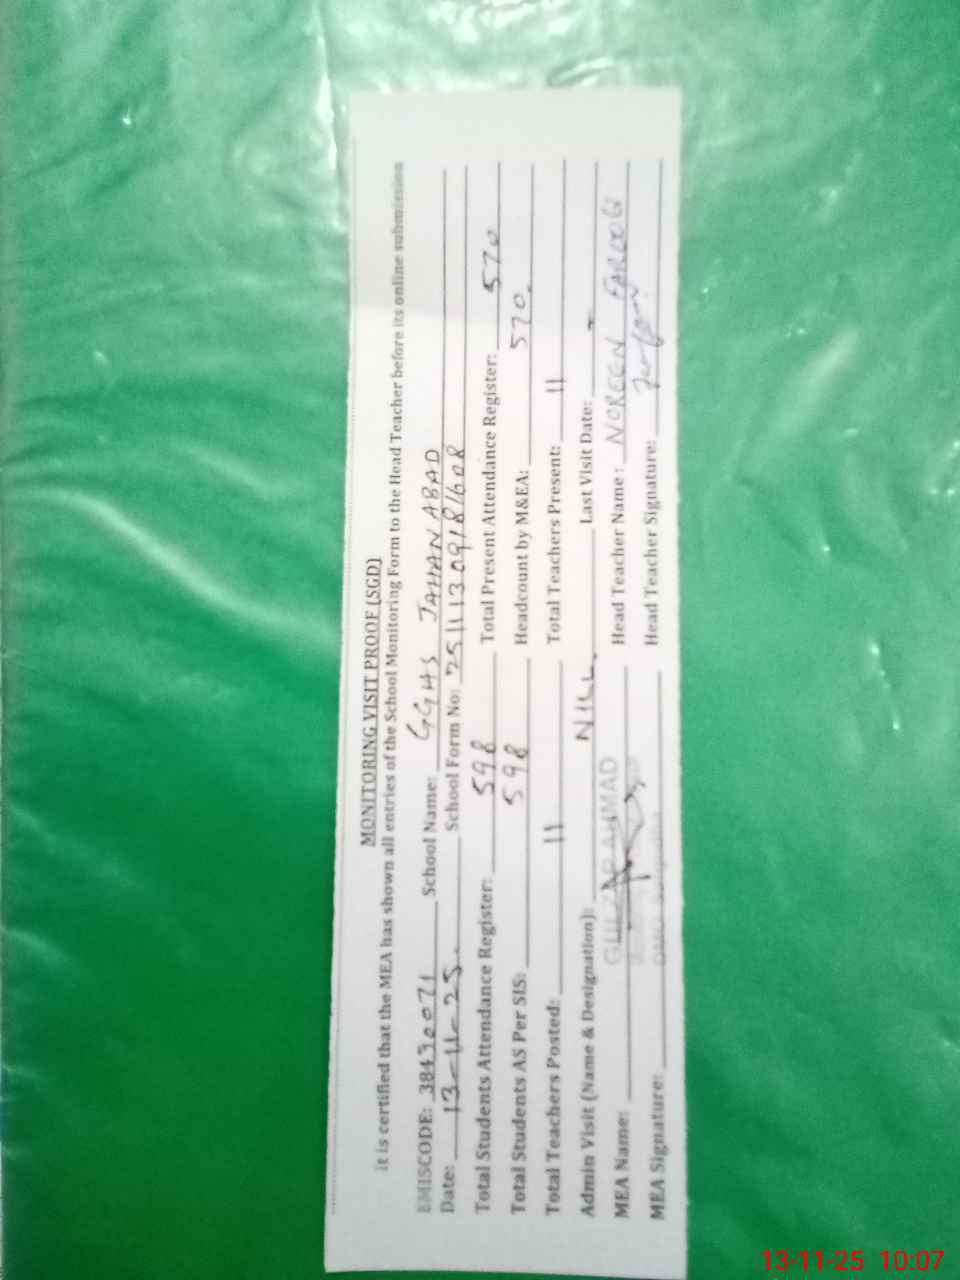 MONITORING VISIT PROOF (SGD)
it is certified that the MEA has shown all entries of the School Monitoring Form to the Head Teacher before its online submission
EMISCODE: 38430071 School Name: GGHS JAHANABAD
Date: 13-11-25. School Form No: 25111309181608
Total Students Attendance Register: 598 Total Present Attendance Register: 570
Total Students AS Per SIS: 598 Headcount by M&EA: 570.
Total Teachers Posted: 11 Total Teachers Present: 11
Admin Visit (Name & Designation): NILL. Last Visit Date: -
MEA Name: GULZAR AHMAD Head Teacher Name: NOREEN FAROOQ
MEA Signature: Head Teacher Signature:
13-11-25 10:07